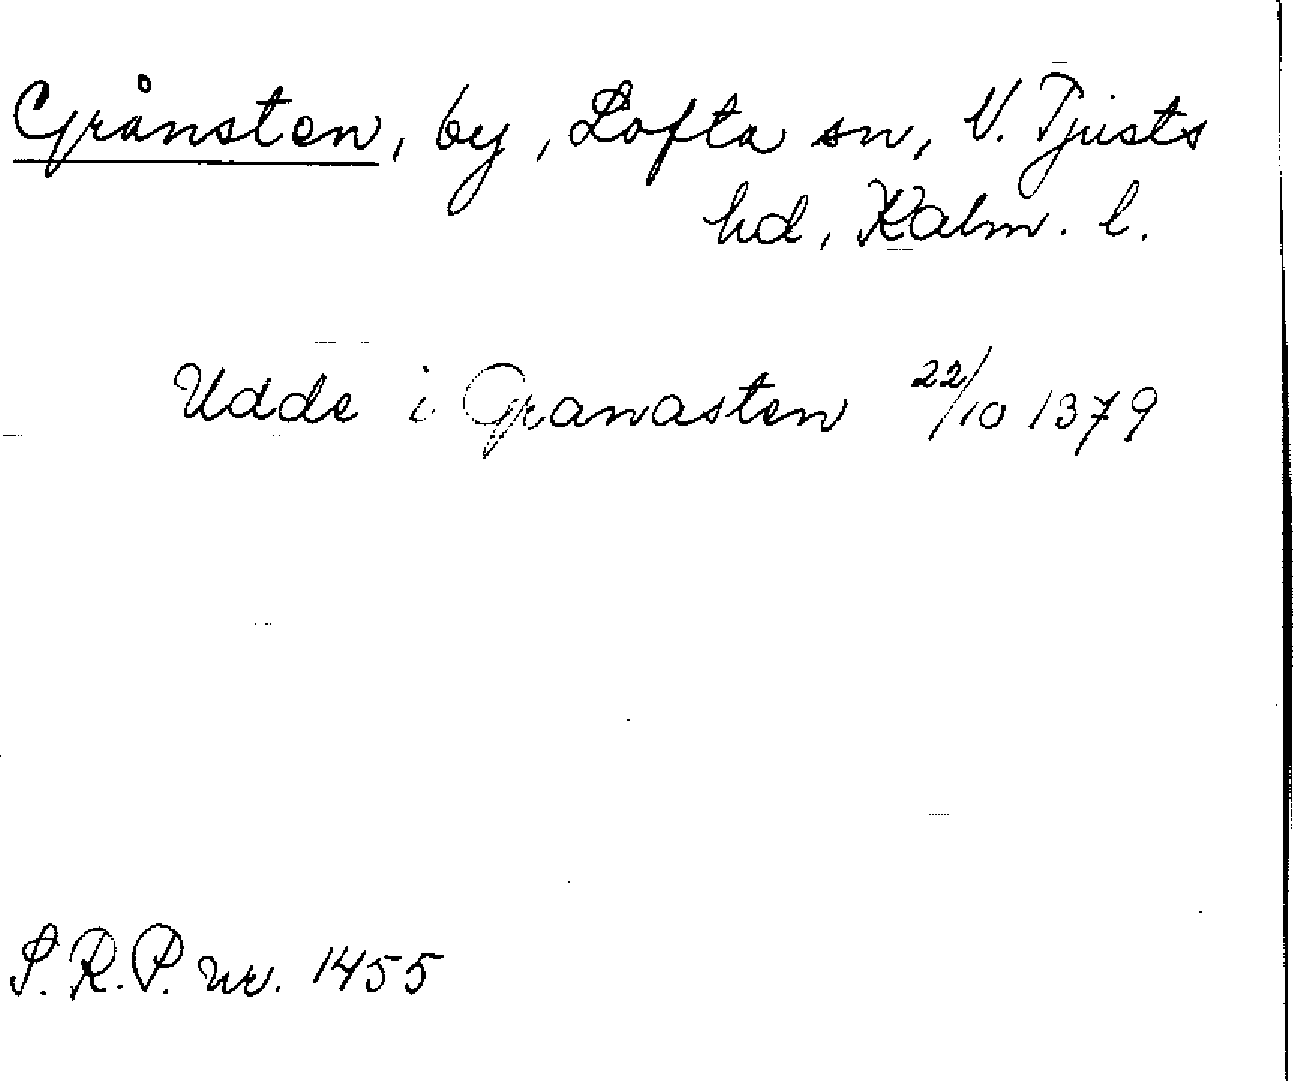 Grånsten, by, Lofta sn, V. Tjusts
hd, Kalm. l.
Udde i Granasten 22/10 1379
S.R.P. nr. 1455